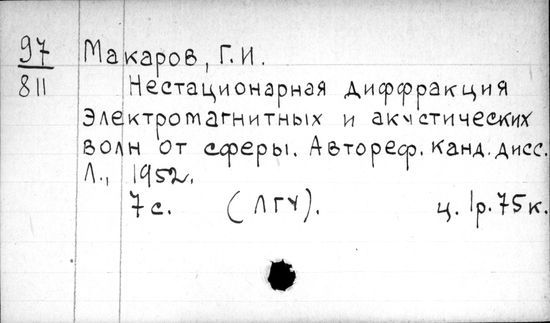 97 Макаров, Г.И.
811 Нестационарная диффракция
электромагнитных и акустических
волн от сферы. Автореф. канд. дисс.
Л., 1952.
7 с. (ЛГУ). ц. 1р. 75к.